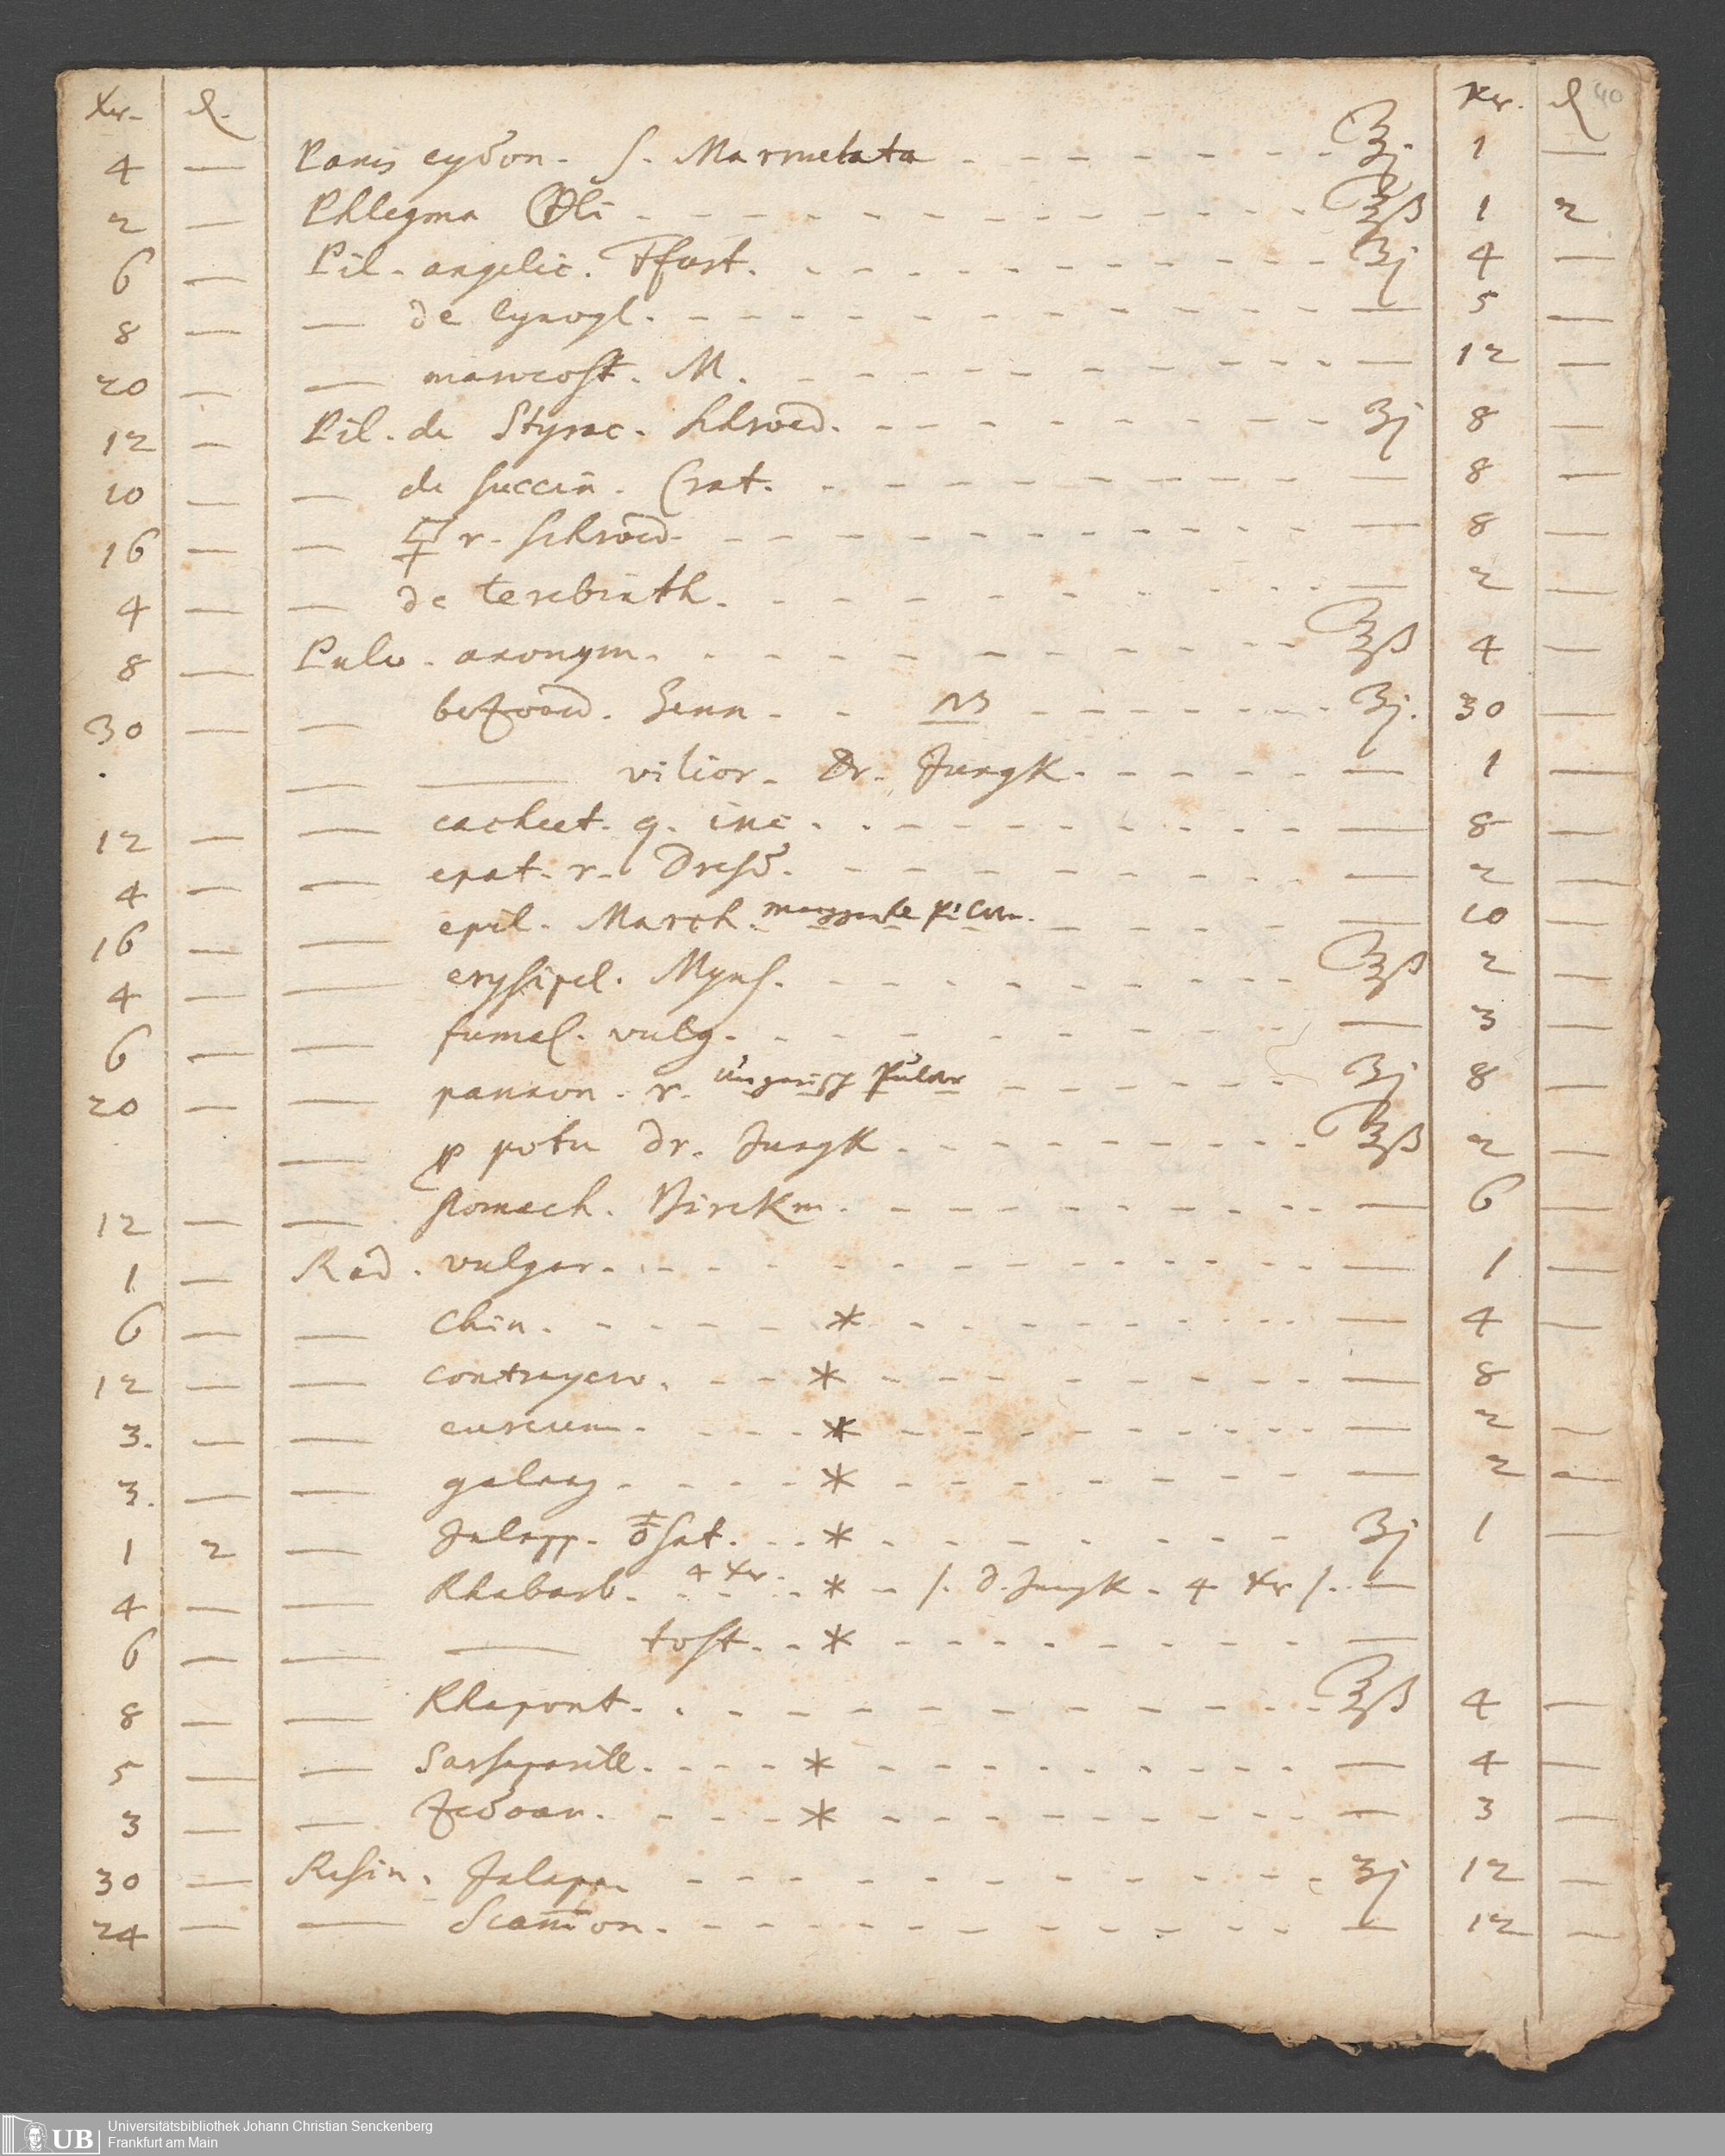 Xr. ₰. Kr. ₰ 40
4 — Panis cydon. s. Marmelata ℥j. 1 —
2 — Phlegma ⦶li ℥ß 1 2
6 — Pil. angelic. Ffurt. ʒj 4 —
8 — — de Cynogl. — 5 —
20 — — marocost. M. — 12 —
12 — Pil. de Styrac. Schroed. ʒj 8 —
10 — — de succin. Crat. — 8 —
16 — — r. Schroed. — 8 —
4 — — de terebinth. — 2 —
8 — Pulv. anonym. ℥ß 4 —
30 — — bezoard. Senn. NB ʒj. 30 —
— — vilior. Dr. Jungk. — 1 —
12 — — cachect. q. inc. — 8 —
4 — — epat. r. Dresd. — 2 —
16 — — epil. March. — 10 —
4 — — erysipel. Myns. ℥ß 2 —
6 — — fumal. vulg. — 3 —
20 — — pannon. r. ungarisch Pulver ʒj 8 —
— p potu Dr. Jungk ℥ß 2 —
12 — — stomach. Birckm. — 6 —
1 — Rad. vulgar. — 1 —
6 — — Chin. * — 4 —
12 — — contrayerv. * — 8 —
3. — — curcum. * — 2 —
3. — — galang. * — 2 —
1 2 — Jalapp. * ʒj 1 —
4 — — Rhabarb. 4 Xr. * /. D. Jungk. 4 Xr /. —
6 — — — tost. * —
8 — — Rhapont. ℥ß 4 —
5 — — Sarsaparill. * — 4 —
3 — — Zedoar. * — 3 —
30 — Resin. Jalapp. ʒj 12 —
24 — — Scam̄on. — 12 —
UB Universitätsbibliothek Johann Christian Senckenberg
Frankfurt am Main